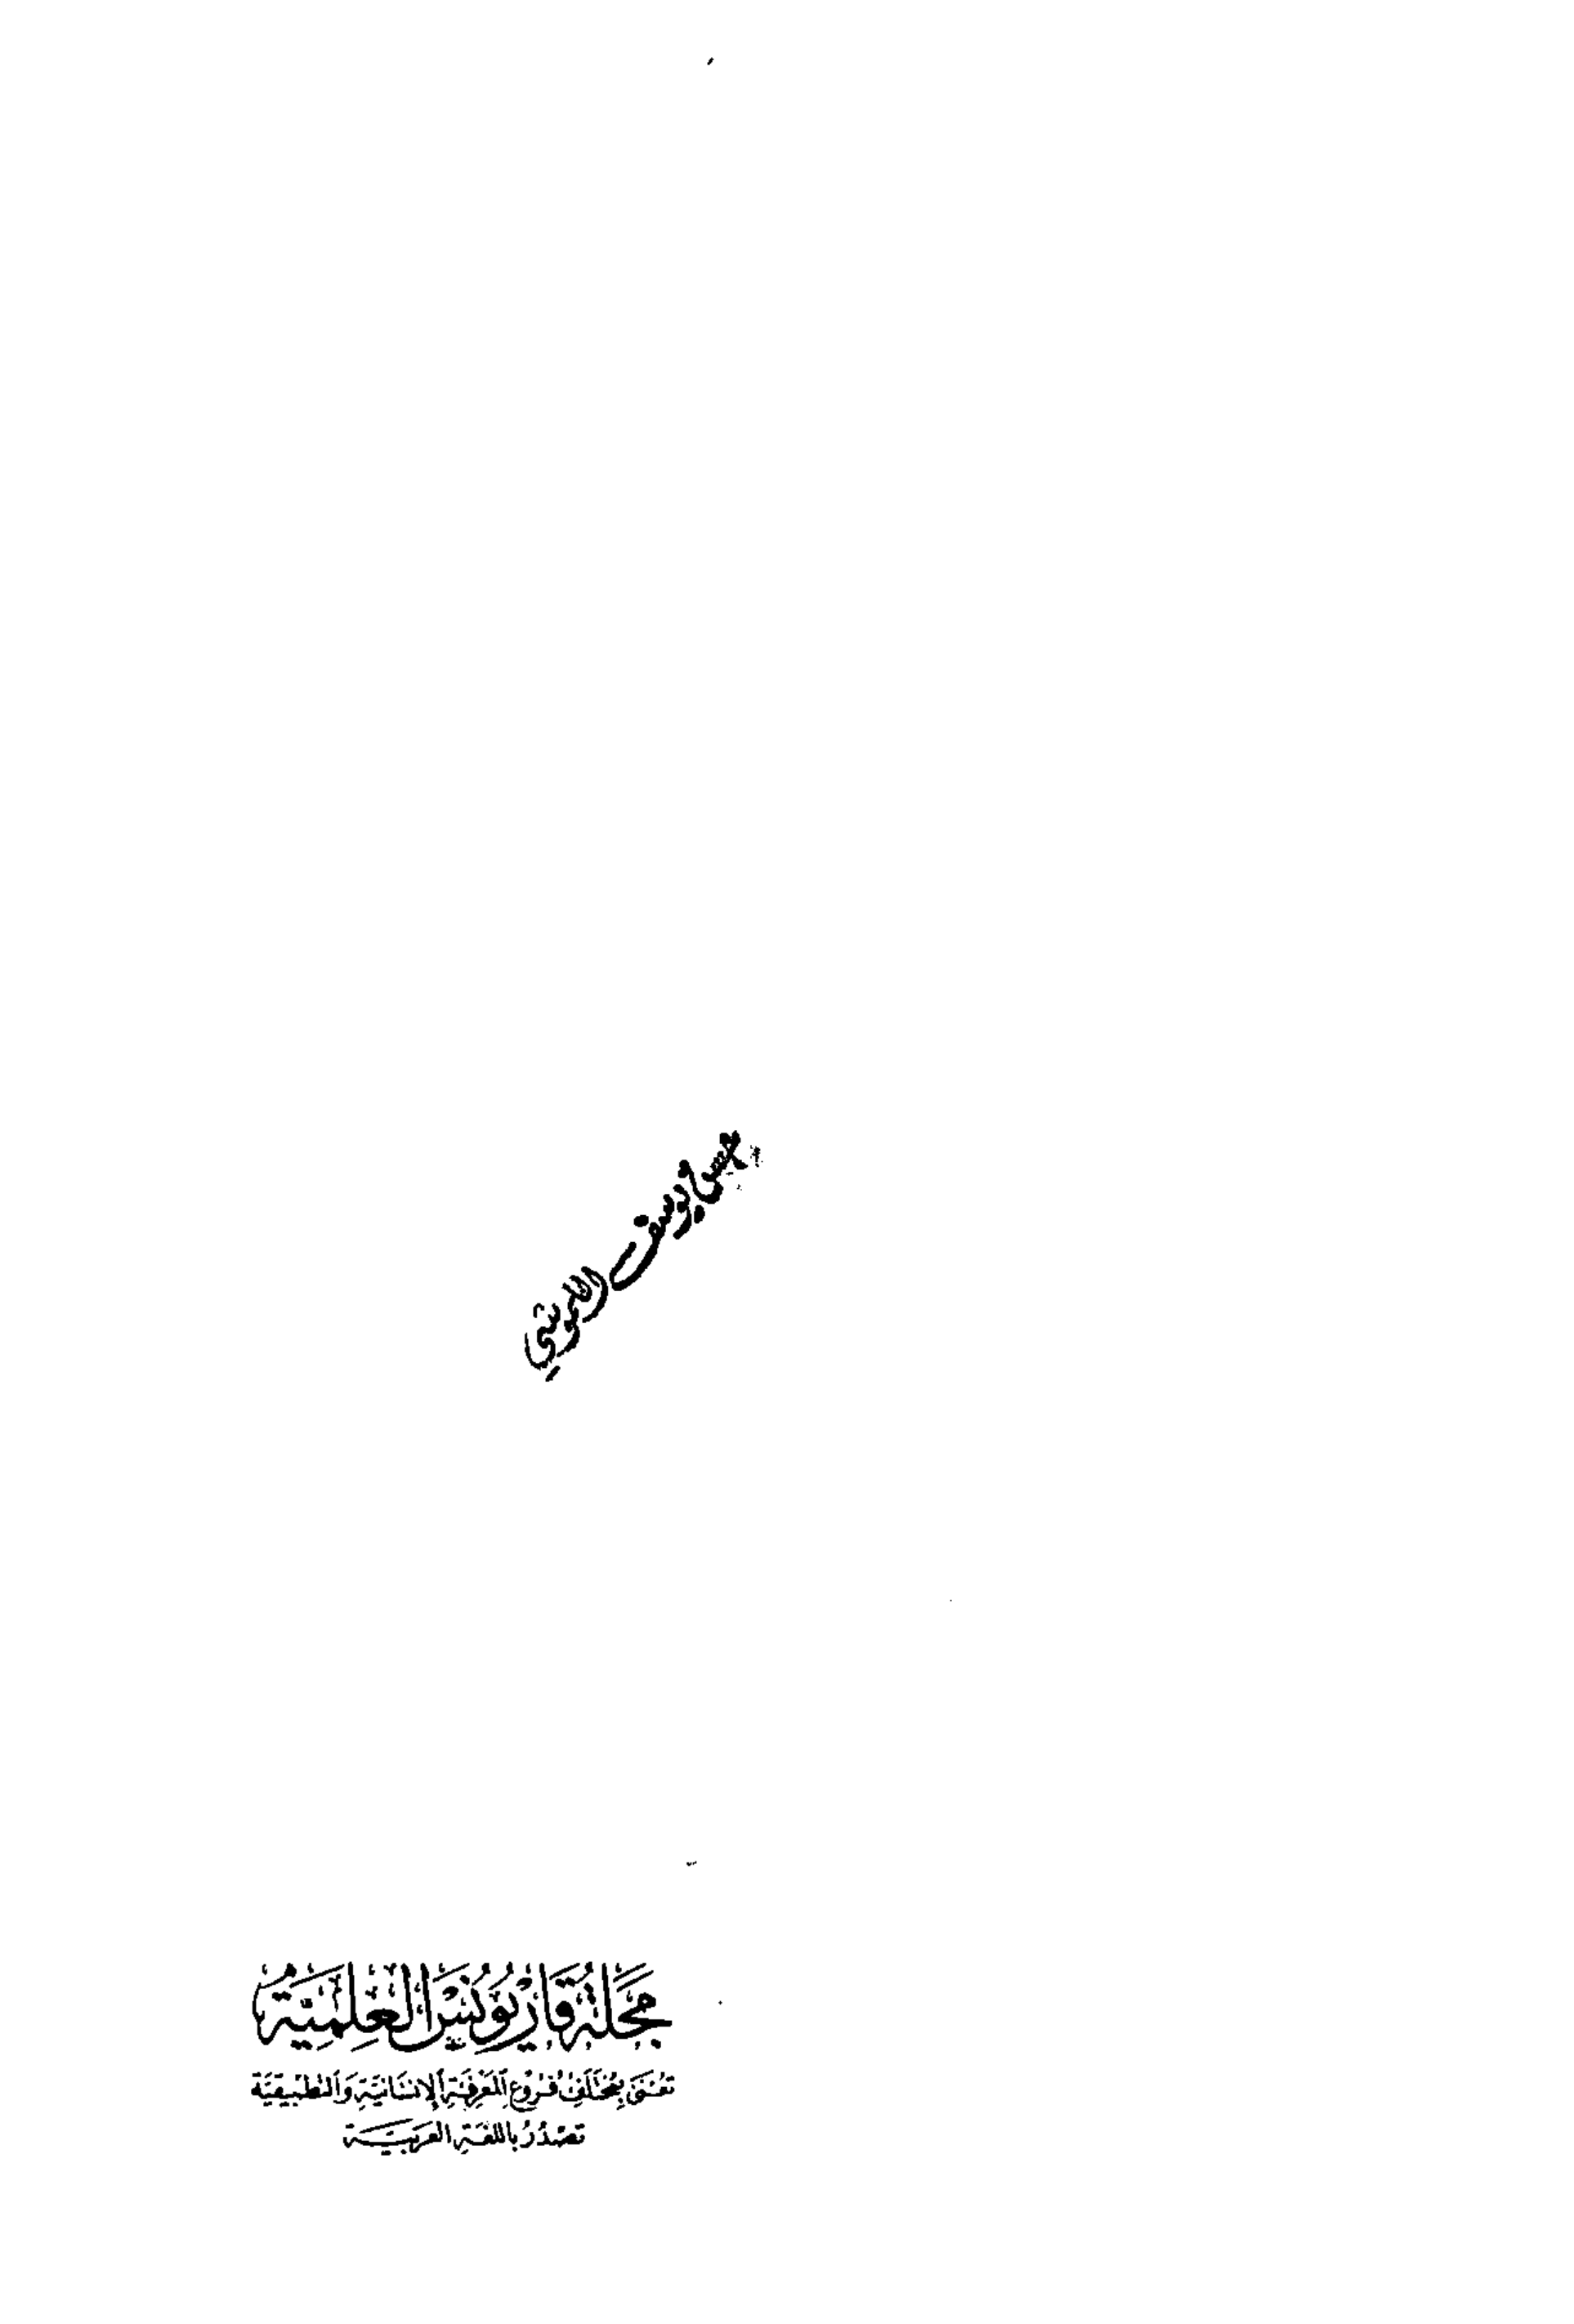 يوسف
مَجَلَّة قَاريُونسَ العِلميَّة
تعنى بمختلف فروع المعرفة الإنسانية والتطبيقية
تصدر باللغة العربية